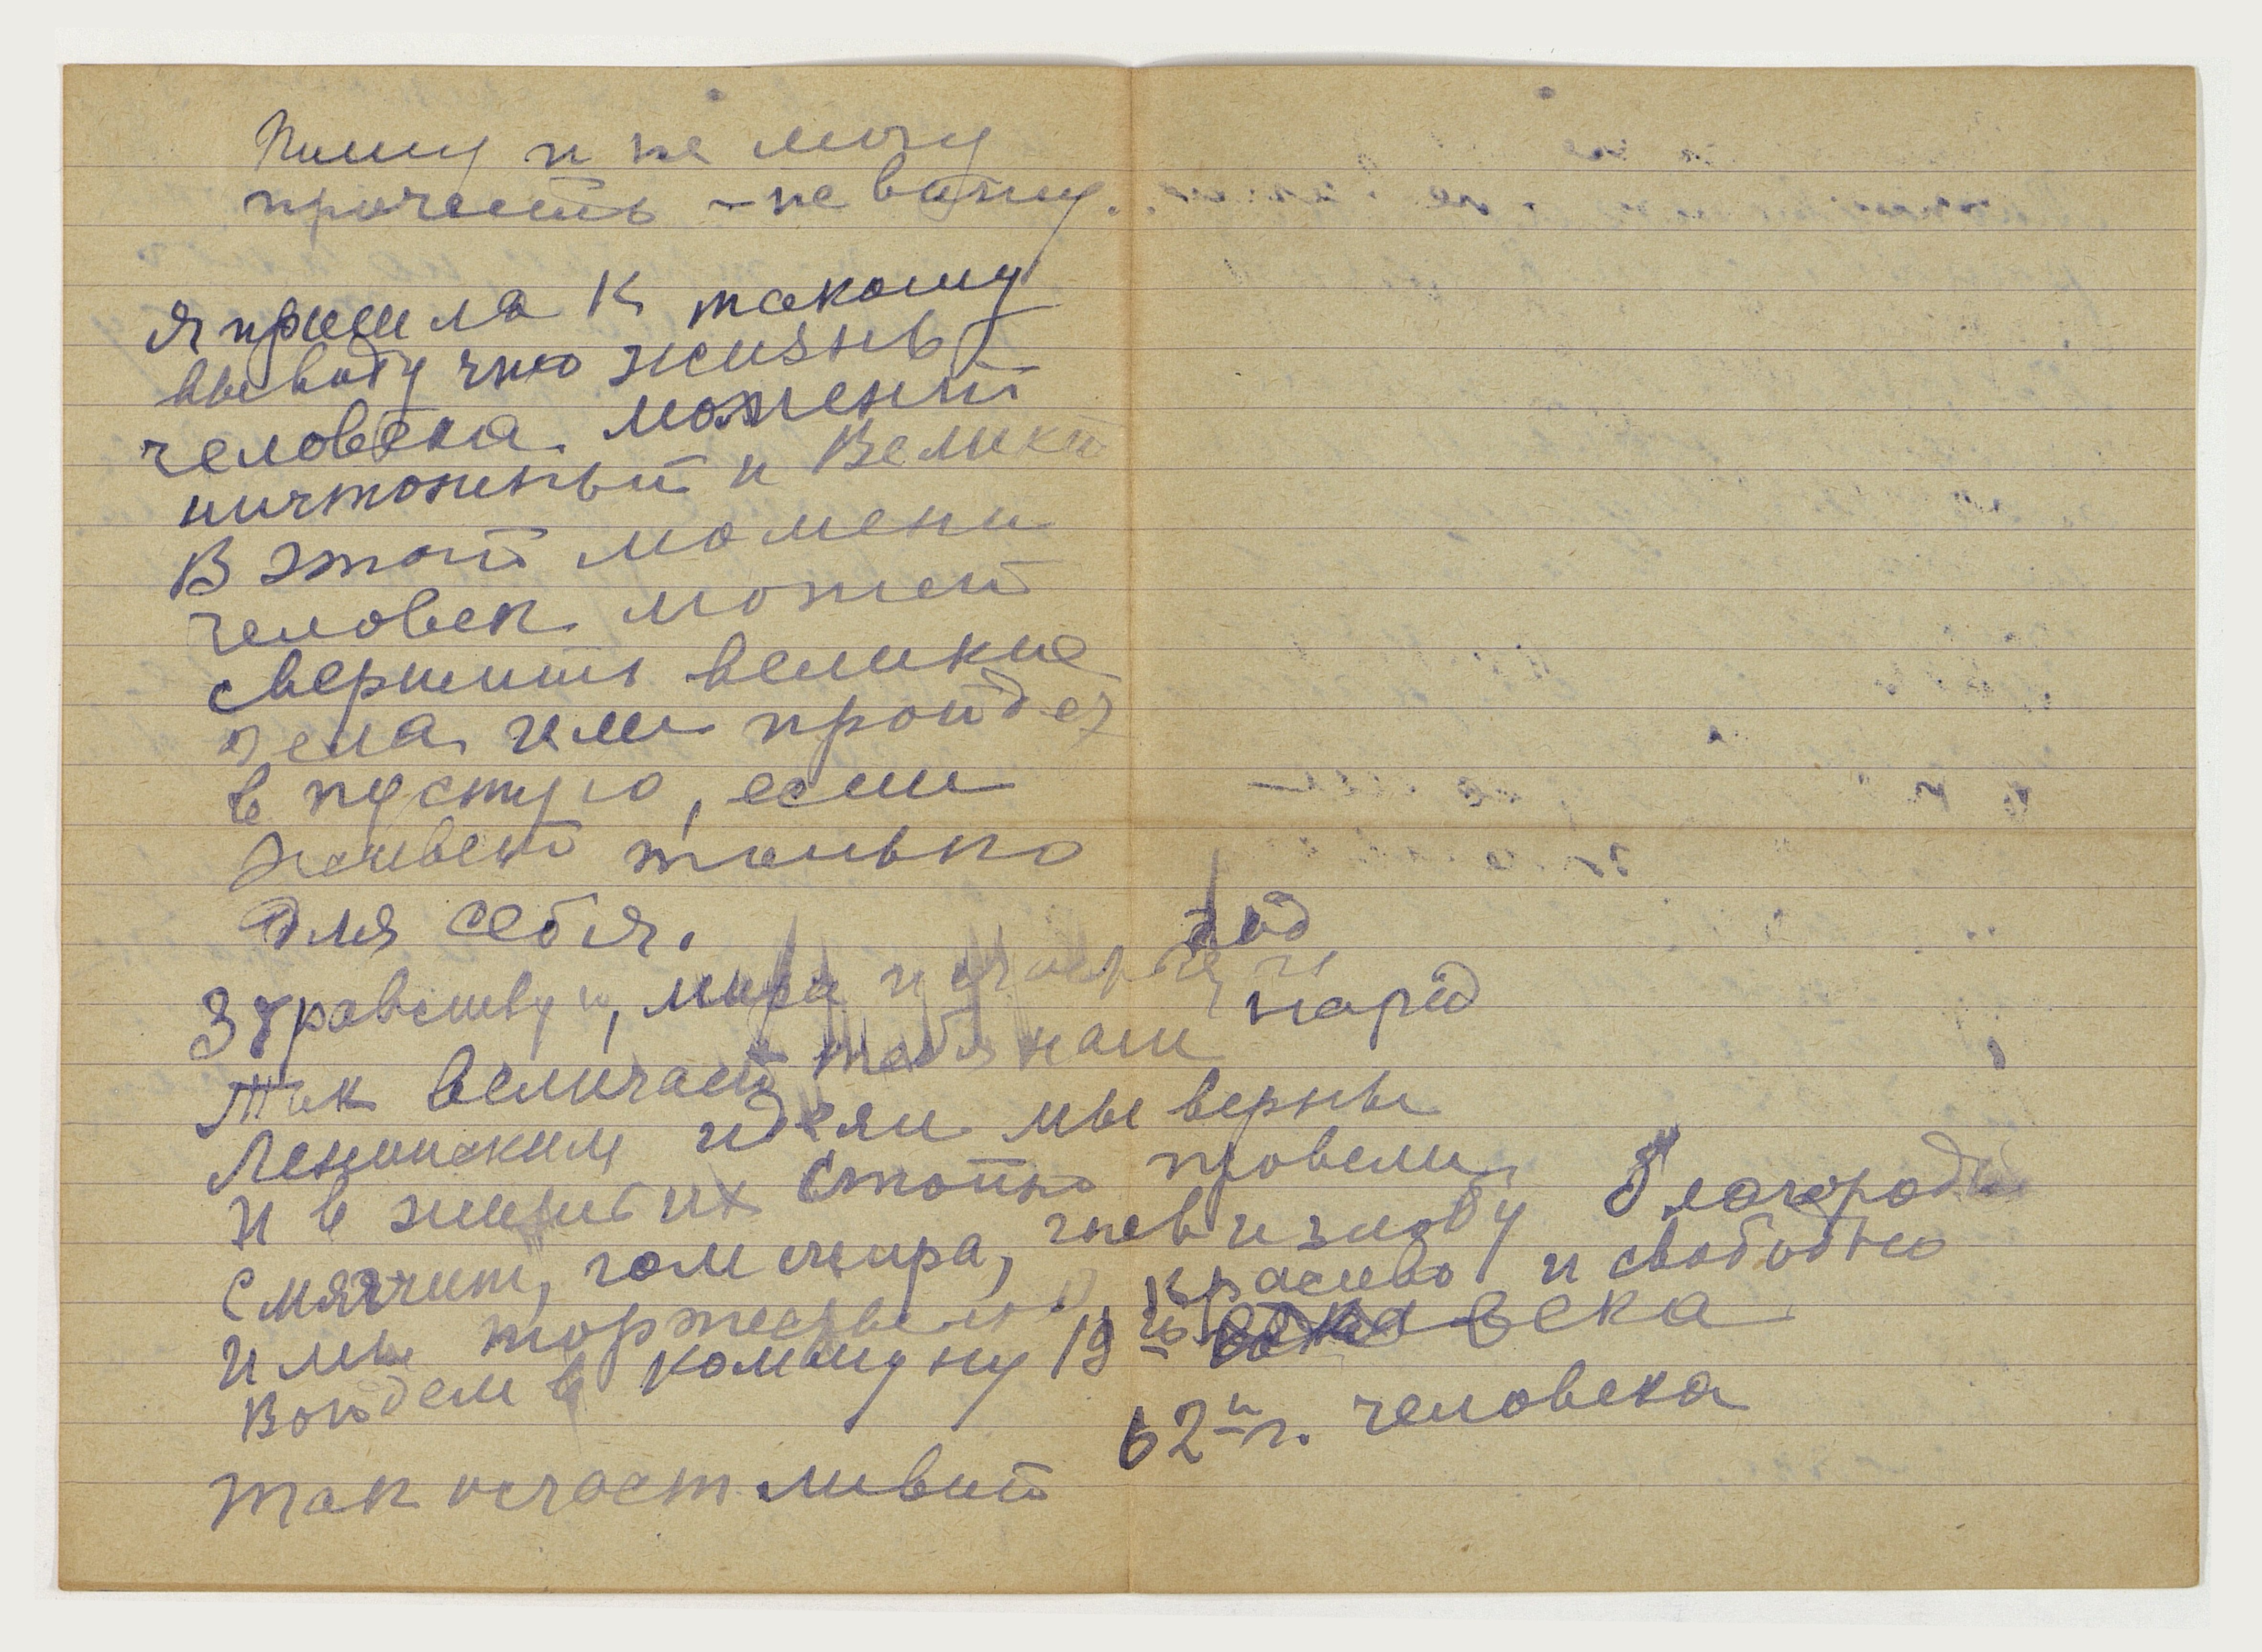 Пишу и не могу
прочесть – не вижу.
я пришла к такому
выводу что жизнь
человека момент
ничтожный и Велики
В этот момент
человек может
свершить великие
дела или пройдет
в пустую, если
живет только
для себя.
Здравствуй, мира и
год
Так величает тебя наш народ
Ленинским идеям мы верны
И в жизнь их стойко провели
Смягчит, гом мира, гнев и злобу благород
И мы торжественно красиво и свободно
Войдем в коммуну 19го века
62й г. человека
Так осчастливит